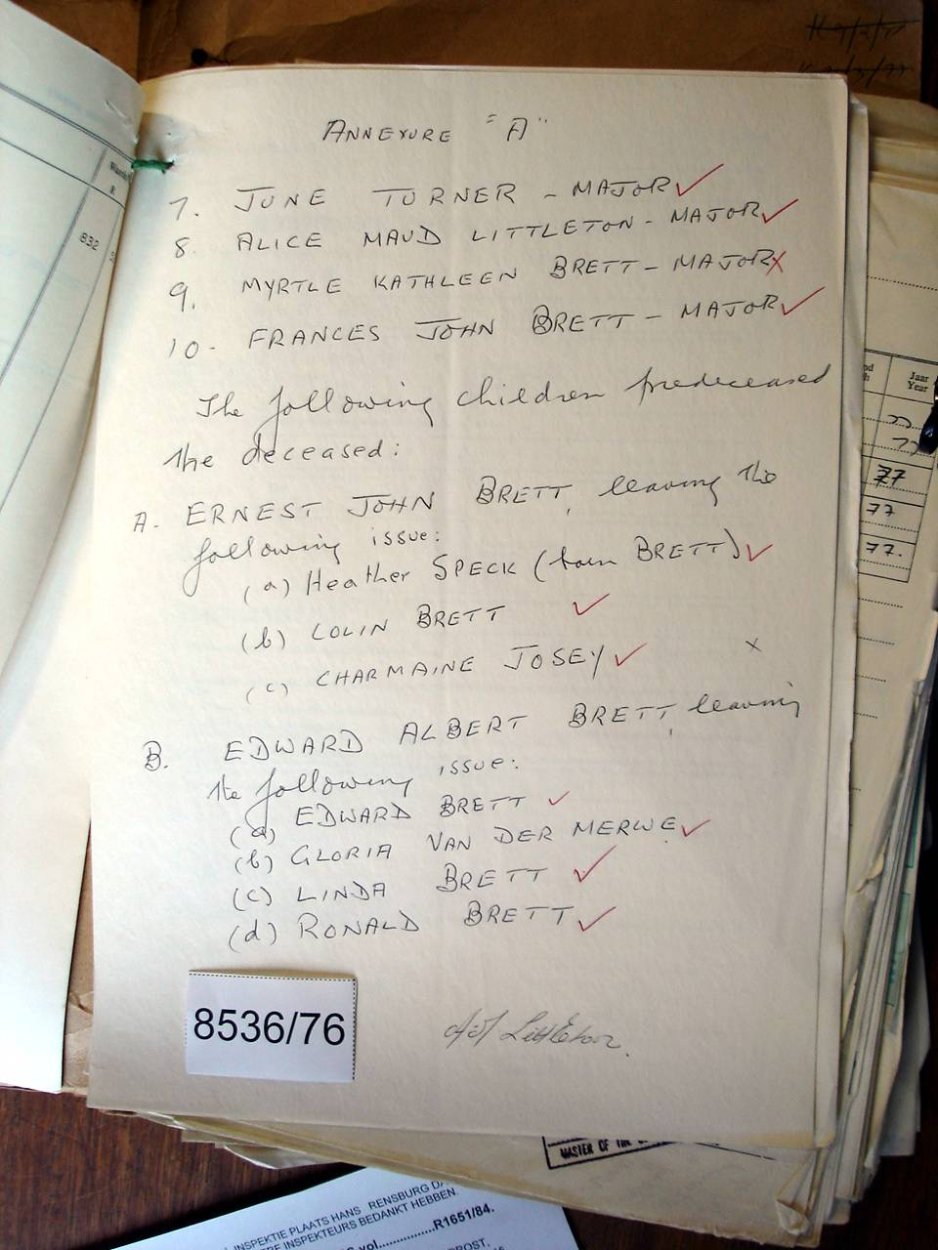 ANNEXURE "A"
7. JUNE TURNER - MAJOR
8. ALICE MAUD LITTLETON - MAJOR
9. MYRTLE KATHLEEN BRETT - MAJOR
10. FRANCES JOHN BRETT - MAJOR
The following children predeceased
the deceased:
A. ERNEST JOHN BRETT, leaving the
following issue:
(a) Heather SPECK (born BRETT)
(b) COLIN BRETT
(c) CHARMAINE JOSEY
B. EDWARD ALBERT BRETT, leaving
the following issue:
(a) EDWARD BRETT
(b) GLORIA VAN DER MERWE
(c) LINDA BRETT
(d) RONALD BRETT
8536/76
Littleton
832
Jaar
Year
77
77
77
77
77.
MASTER OF THE
INSPEKTIE PLAATS HANS RENSBURG
INSPEKTEURS BEDANKT HEBBEN.
vol...............R1651/84.
PROST,